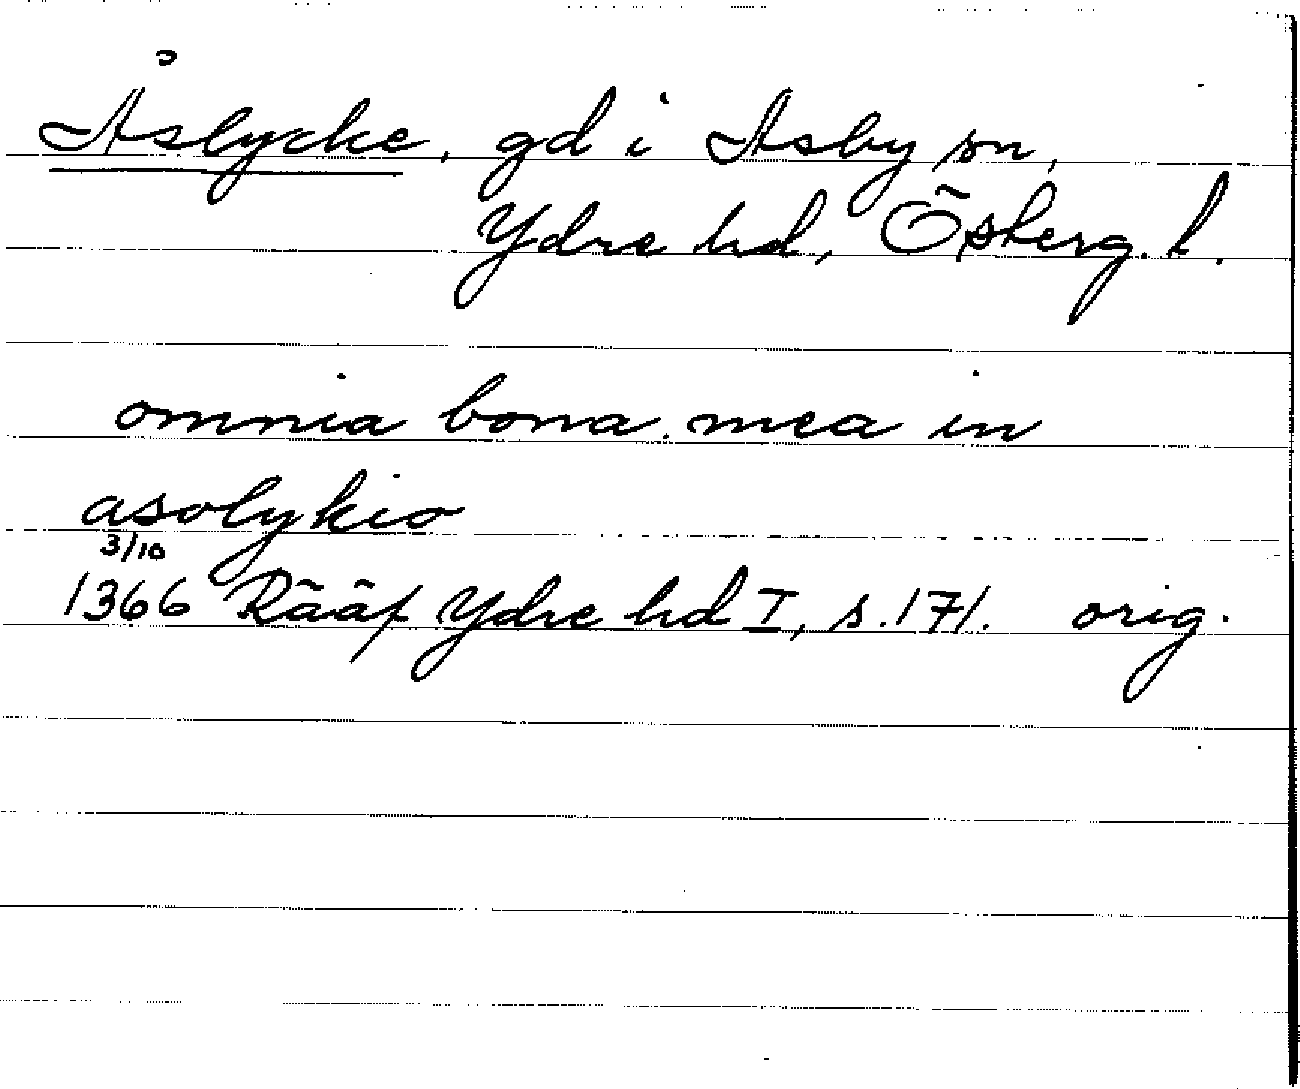 Åslycke, gd i Asby sn,
Ydre hd, Österg. l.
omnia bona mea in
asolykio
3/10
1366 Rääf Ydre hd I, s. 171. orig.